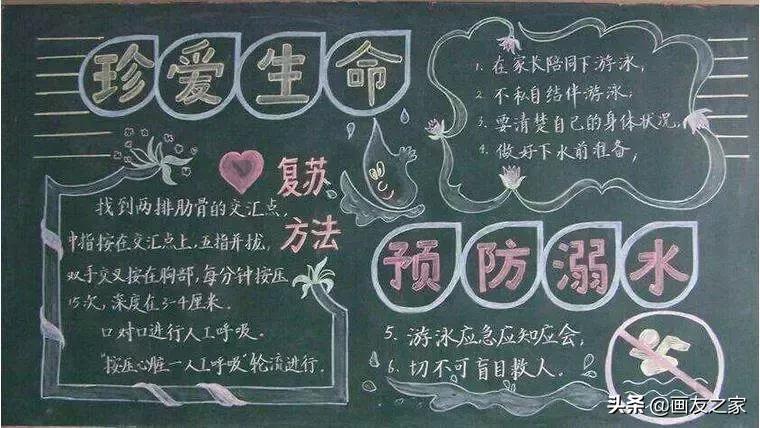 珍爱生命
1. 在家长陪同下游泳，
2. 不私自结伴游泳；
3. 要清楚自己的身体状况，
4. 做好下水前准备，
复苏
方法
找到两排肋骨的交汇点，
中指按在交汇点上，五指并拢，
双手交叉按在胸部，每分钟按压
15次，深度在3-4厘米．
口对口进行人工呼吸．
"按压心脏一人工呼吸"轮流进行．
预防溺水
5. 游泳应急应知应会，
6. 切不可盲目救人．
头条@画友之家